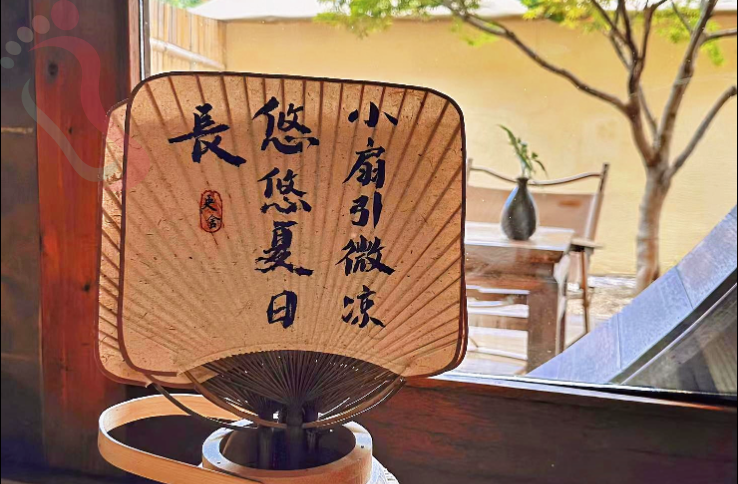 小扇引微凉
悠悠夏日
長